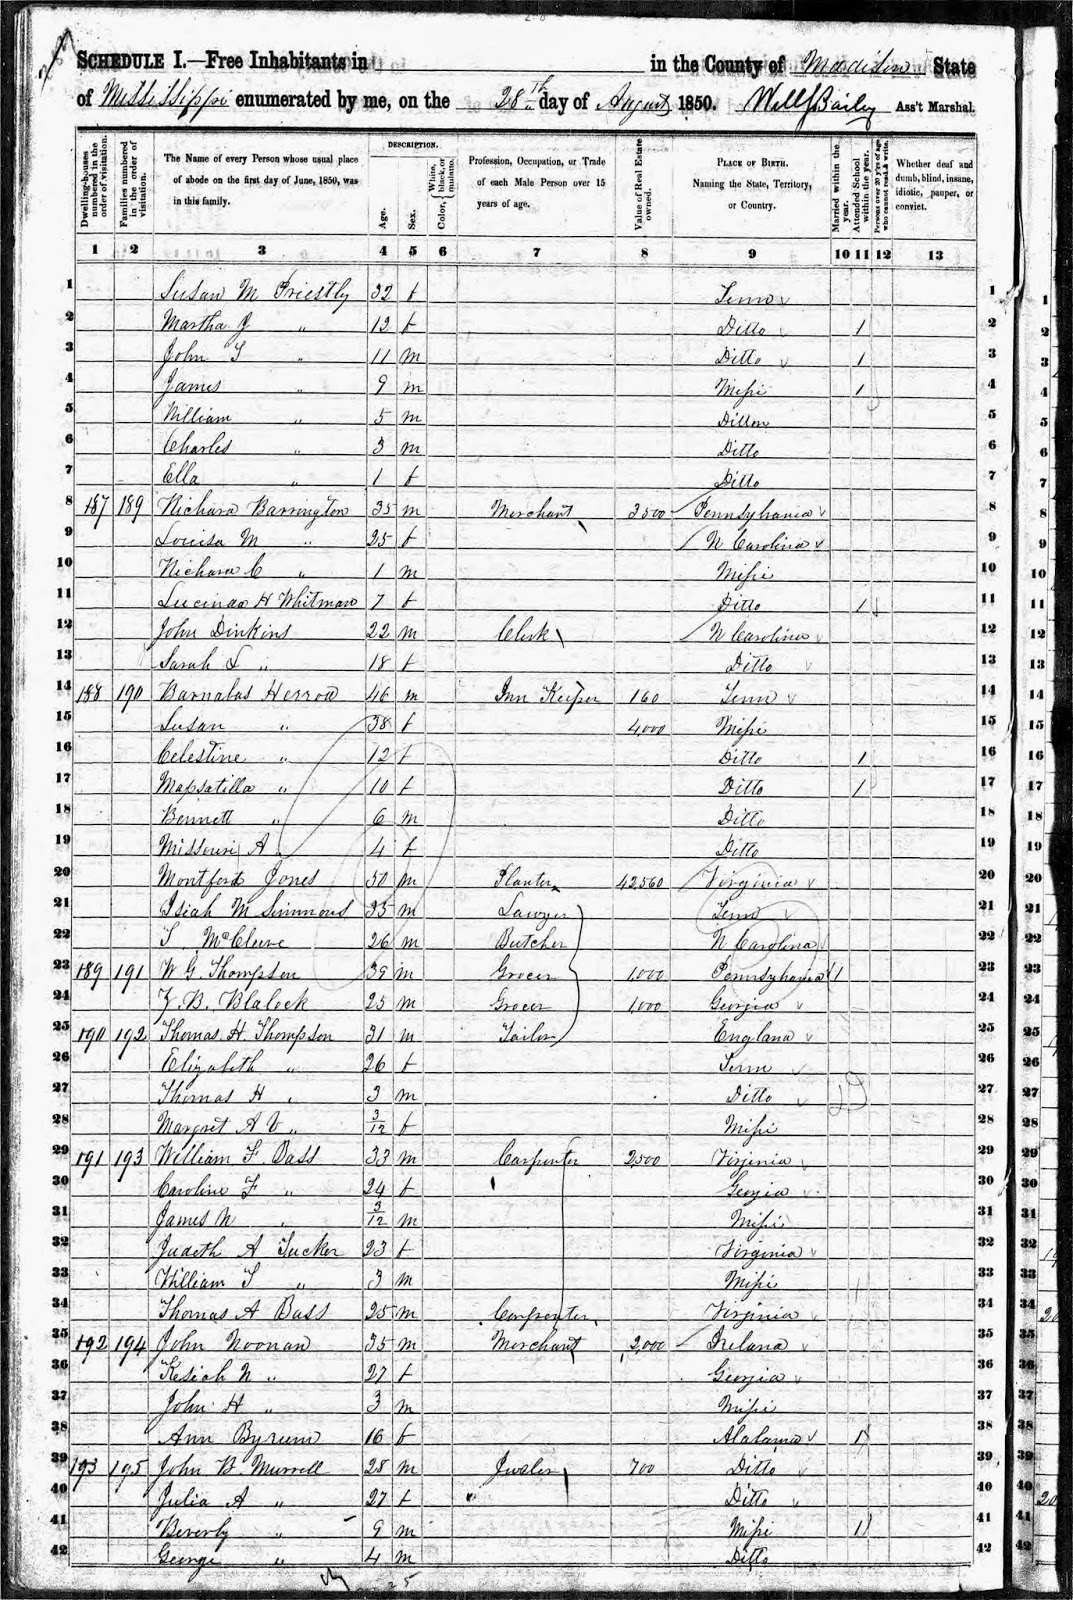 SCHEDULE I.—Free Inhabitants in in the County of Madison State
of Mississippi enumerated by me, on the 28th day of August 1850. Ass't Marshal.
DESCRIPTION.
Dwelling-houses numbered in the order of visitation.
Families numbered in the order of visitation.
The Name of every Person whose usual place of abode on the first day of June, 1850, was in this family.
Age.
Sex.
Color, White, black, or mulatto.
Profession, Occupation, or Trade of each Male Person over 15 years of age.
Value of Real Estate owned.
PLACE OF BIRTH. Naming the State, Territory, or Country.
Married within the year.
Attended School within the year.
Persons over 20 y'rs of age who cannot read & write.
Whether deaf and dumb, blind, insane, idiotic, pauper, or convict.
1 2 3 4 5 6 7 8 9 10 11 12 13
1 Susan M Priestly 32 f Tenn 1
2 Martha J " 12 f Ditto 1 2
3 John T " 11 m Ditto 1 3
4 James " 9 m Missi 1 4
5 William " 5 m Ditto 5
6 Charles " 3 m Ditto 6
7 Ella " 1 f Ditto 7
8 187 189 Richard Barrington 35 m Merchant 3500 Pennsylvania 8
9 Louisa M " 25 f N Carolina 9
10 Richard C " 1 m Missi 10
11 Lucinda H Whitman 7 f Ditto 1 11
12 John Dinkins 22 m Clerk N Carolina 12
13 Sarah L " 18 f Ditto 13
14 188 190 Barnabas Herrod 46 m Inn Keeper 160 Tenn 14
15 Susan " 38 f 4,000 Missi 15
16 Celestine " 12 f Ditto 1 16
17 Massatilla " 10 f Ditto 1 17
18 Bennett " 6 m Ditto 18
19 Missouri A " 4 f Ditto 19
20 Montford Jones 50 m Planter 42,560 Virginia 20
21 Isiah M Simmons 35 m Lawyer Tenn 21
22 McCleeve 26 m Butcher N Carolina 22
23 189 191 W G Thompson 39 m Grocer 1,000 Pennsylvania 1 23
24 Z. B. Blalock 25 m Grocer 1,000 Georgia 24
25 190 192 Thomas H. Thompson 31 m Tailor England 25
26 Elizabeth " 26 f Tenn 26
27 Thomas H " 3 m Ditto 27
28 Margret A V " 3/12 f Missi 28
29 191 193 William F Bass 33 m Carpenter 2,500 Virginia 29
30 Caroline F " 24 f Georgia 30
31 James W " 3/12 m Missi 31
32 Judeth A Tucker 23 f Virginia 32
33 William T " 3 m Missi 33
34 Thomas A Bass 25 m Carpenter Virginia 34
35 192 194 John Noonan 35 m Merchant 2,000 Ireland 35
36 Kesiah N " 27 f Georgia 36
37 John H " 3 m Missi 37
38 Ann Byrum 16 f Alabama 1 38
39 193 195 John B. Murrell 28 m Jweler 700 Ditto 39
40 Julia A " 27 f Ditto 40
41 Beverly " 9 m Missi 1 41
42 George " 4 m Ditto 42